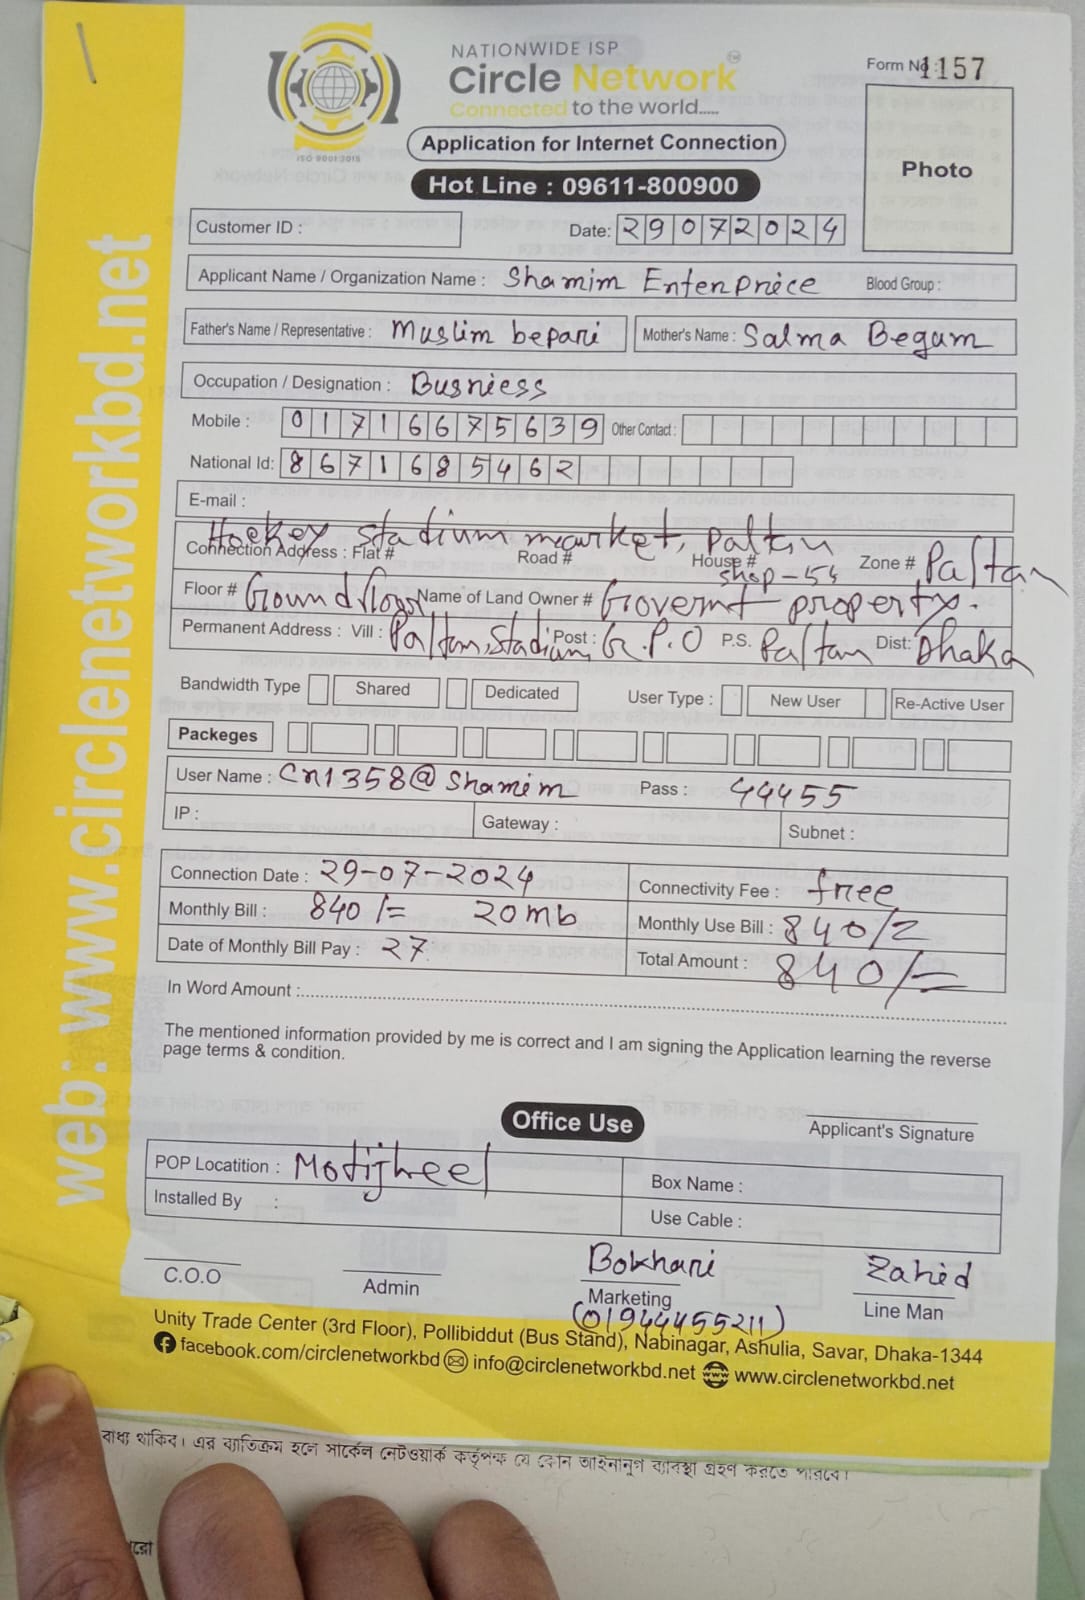 NATIONWIDE ISP
Circle Network
Connected to the world.....
ISO 9001:2015
Form No : 1157
Application for Internet Connection
Hot Line : 09611-800900
Photo
Customer ID :
Date: 29072024
Applicant Name / Organization Name : Shamim Enterpriece Blood Group :
Father's Name / Representative : Muslim bepari Mother's Name : Salma Begum
Occupation / Designation : Busniess
Mobile : 01716675639 Other Contact :
National Id: 8671685462
E-mail :
Hockey stadium market, Paltan
Connection Address : Flat # Road # House # shop-54 Zone # Paltan
Floor # Ground floor Name of Land Owner # Govermt property.
Permanent Address : Vill : Paltan, Stadium Post : G.P.O P.S. Paltan Dist: Dhaka
Bandwidth Type Shared Dedicated User Type : New User Re-Active User
Packeges
User Name : Cn1358@Shamim Pass : 44455
IP : Gateway : Subnet :
Connection Date : 29-07-2024 Connectivity Fee : free
Monthly Bill : 840/= 20mb Monthly Use Bill : 840/=
Date of Monthly Bill Pay : 27 Total Amount : 840/=
In Word Amount :
The mentioned information provided by me is correct and I am signing the Application learning the reverse
page terms & condition.
Office Use
Applicant's Signature
POP Locatition : Motijheel Box Name :
Installed By : Use Cable :
Bokhari Zahid
C.O.O Admin Marketing Line Man
(01944455211)
Unity Trade Center (3rd Floor), Pollibiddut (Bus Stand), Nabinagar, Ashulia, Savar, Dhaka-1344
facebook.com/circlenetworkbd info@circlenetworkbd.net www.circlenetworkbd.net
web: www.circlenetworkbd.net
বাধ্য থাকিব। এর ব্যতিক্রম হলে সার্কেল নেটওয়ার্ক কর্তৃপক্ষ যে কোন আইনানুগ ব্যবস্থা গ্রহণ করতে পারবে।